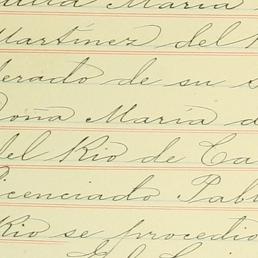 María
Martínez del
erado de su
Doña María d
del Rio de Ca
icenciado Pab
Rio se procedio